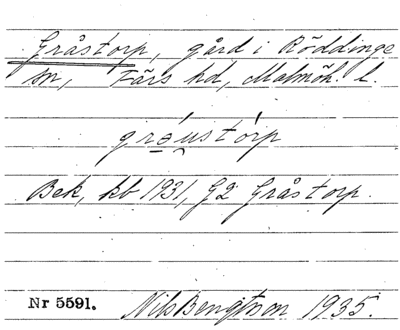 Gråstorp, gård i Röddinge
sn, Färs hd, Malmöh. l.
grə́ustórp
Bek, kb 1931, G2 Gråstorp.
Nr 5591. Nils Bengtson 1935.